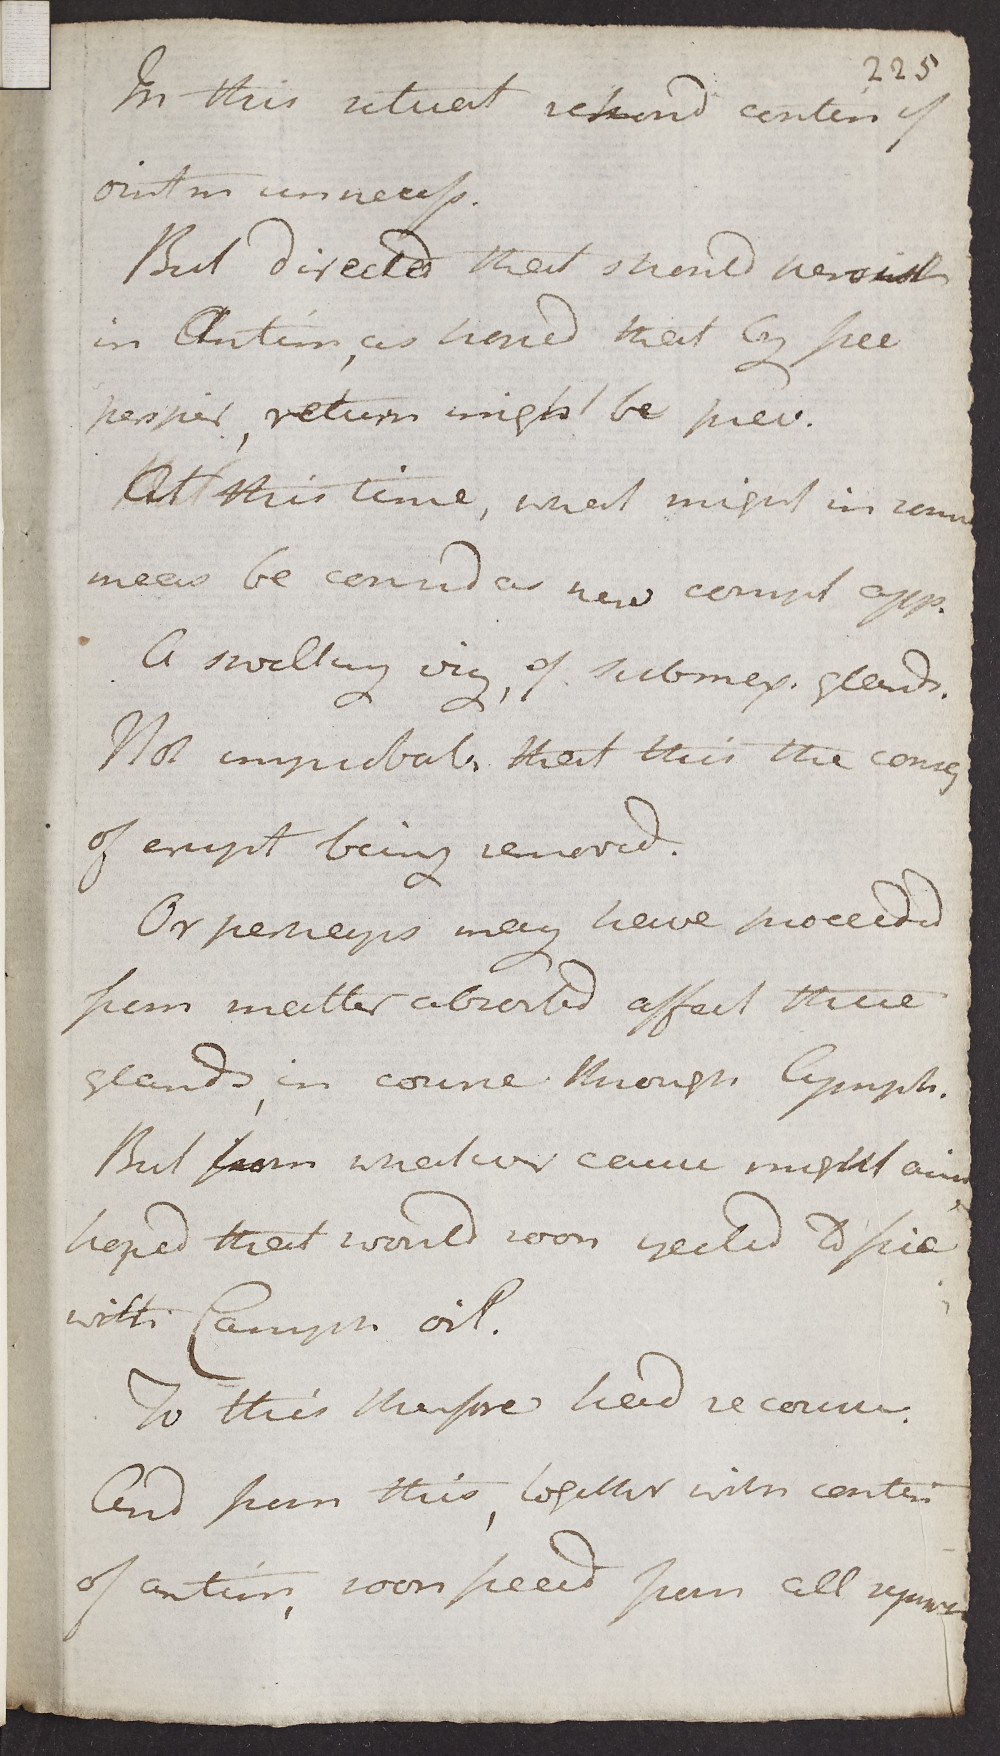 225
In this situat rekond contin of
ointm unnecess.
But directed that should persist
in Antim, as hoped that by free
perspir, return might be prev.
At this time, what might in some
meas be consid as new compt app.
A swelling viz, of submax. glands.
Not improbab. that this the conseq
of erupt being removed.
Or perhaps may have proceeded
from matter absorbed affect these
glands, in course through lymph.
But from whatever cause might arise,
hoped that would soon yeeled to fric
with Camph oil.
To this therefore had recourse.
And from this, together with contin
of antim, soon freed from all